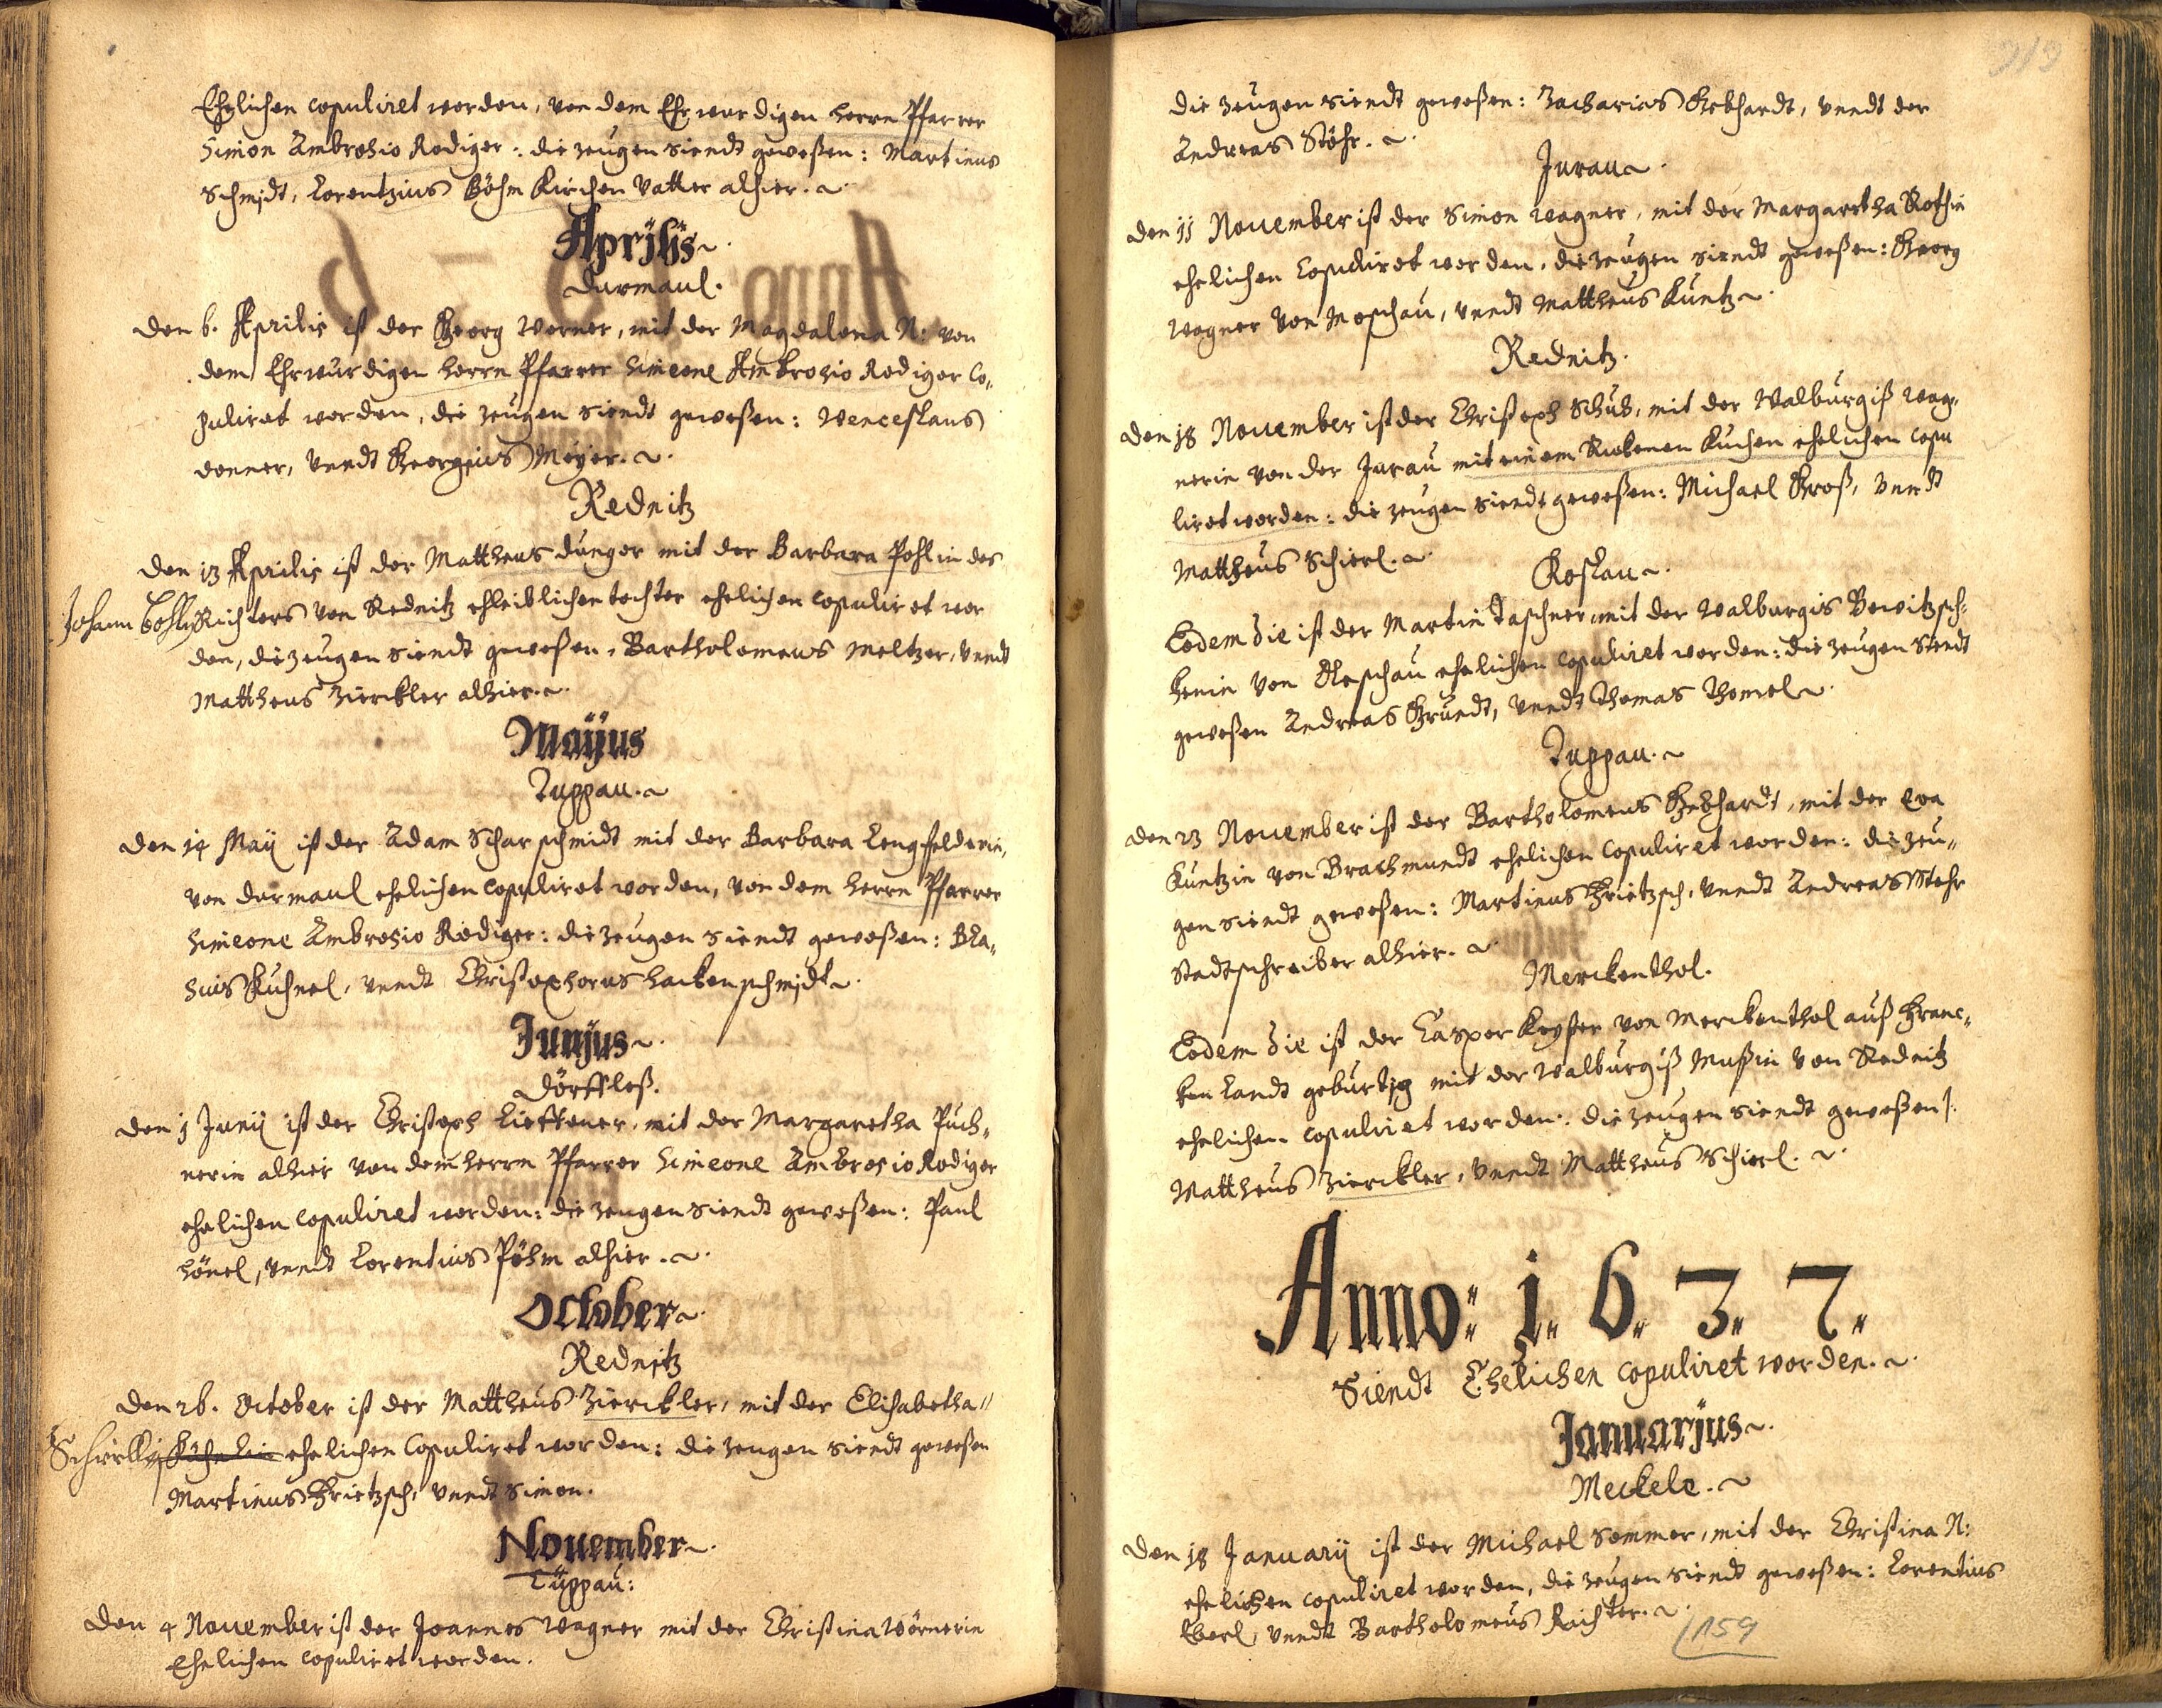 Ehelichen copuliret worden, von dem Ehrwurdigen herrn Pfarrer
Simon Ambrosio Rodiger: die zeugen siendt geweßen: Martinus
Schmidt, Lorentzius Böhm Kirchen Vatter alhier.
Aprilis
Durmaul.
Den 6. Aprilis ist der Georg Werner, mit der Magdalena N: von
dem Ehrwurdigen herrn Pfarrer Simeone Ambrosio Rodiger Co,
puliret worden, die zeugen siendt geweßen: Wenceslaus
donner, vnndt Georgius Meÿer.
Rednitz
Den 13 Aprilis ist der Mattheus Dunger mit der Barbara Pohlin des
Johann Pohln Richters von Rednitz ehleiblichen tochter ehelichen copuliret wor
den, die zeugen siendt geweßen, Bartholomeus Meltzer, vnndt
Mattheus Zierckler alhier.
Maÿus
Luppau.
Den 14 Maÿ ist der Adam Scharschmidt mit der Barbara Lengfelderin,
von durmaul ehelichen copuliret worden, von dem herrn Pfarrer
Simeone Ambrosio Rodiger: die zeugen siendt geweßen: Bla,
sius Kuhnel, vnndt Christophorus hackenschmidt.
Junÿus
Dörffleß.
Den 1 Junÿ ist der Christoph Lieffener, mit der Margaretha Puch,
nerin alhier von dem herrn Pfarrer Simeone Ambrosio Rodiger
ehelichen copuliret worden: die zeugen siendt geweßen: Paul
hönel, vnndt Lorentius Pöhm alhier.
October
Rednitz
Den 26. October ist der Mattheus Zierckler, mit der Elisabetha
ehelichen Copuliret worden: die zeugen siendt geweßen
Martinus Frietzsch, vnndt Simon.
November
Luppau:
Den 4 November ist der Joannes Wagner mit der Christina Wörnerin
Ehelichen copuliret worden.
Die zeugen siendt geweßen: Zacharias Gebhardt, vnndt der
Andreas Stöhr.
Jurau
Den 11 November ist der Simon Wagner, mit der Margaretha Rothin
ehelichen Copuliret worden, die zeugen siendt geweßen: Georg
Wagner von Moschau, vnndt Mattheus Kuntz
Rednitz.
Den 18 November ist der Christoph Schuh, mit der Walburgiß Wag,
nerin von der Jurau mit einem Kuchen ehelichen copu
liret worden: die zeugen siendt geweßen: Michael Groß, vnndt
Mattheus Schierl.
Koslau
Eodem die ist der Martin Taschner mit der Walburgis
von ehelichen copuliret worden: die zeugen siendt
geweßen Andreas Grundt, vnndt Thomas Thomel
Luppau.
Den 23 November ist der Bartholomeus Gebhardt, mit der Eva
Kuntzin von Brachmundt ehelichen Copuliret worden: die zeu,
gen siendt geweßen: Martinus Frietzsch, vnndt Andreas Stehr
Stadtschreiber alhier.
Merckenthol.
Eodem die ist der Casper Keyßer von Merckenthol auß Franc,
ken Landt geburtig mit der Walburgiß Mußin von Rednitz
ehelichen copuliret worden: die zeugen siendt geweßen
Mattheus Zierckler, vnndt Mattheus Schierl.
Anno: 1. 6. 3. 7.
Siendt Ehelichen copuliret worden.
Januarjus
Meckele.
Den 18 Januarÿ ist der Michael Sommer, mit der Christina N:
ehelichen copuliret worden, die zeugen siendt geweßen: Lorentius
Eberl, vnndt Bartholomeus Richter.
159